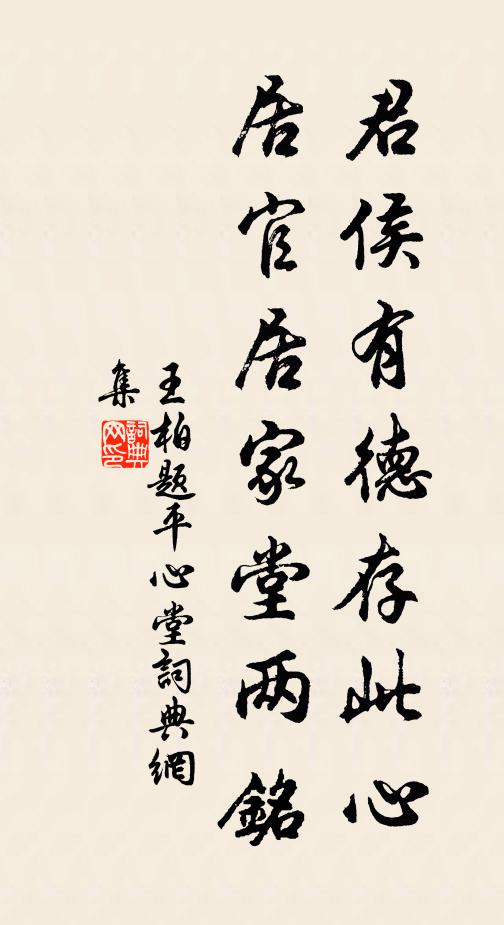 君侯有德存此心
居官居家堂两銘
王柏题平心堂詞典網
集
詞典网印